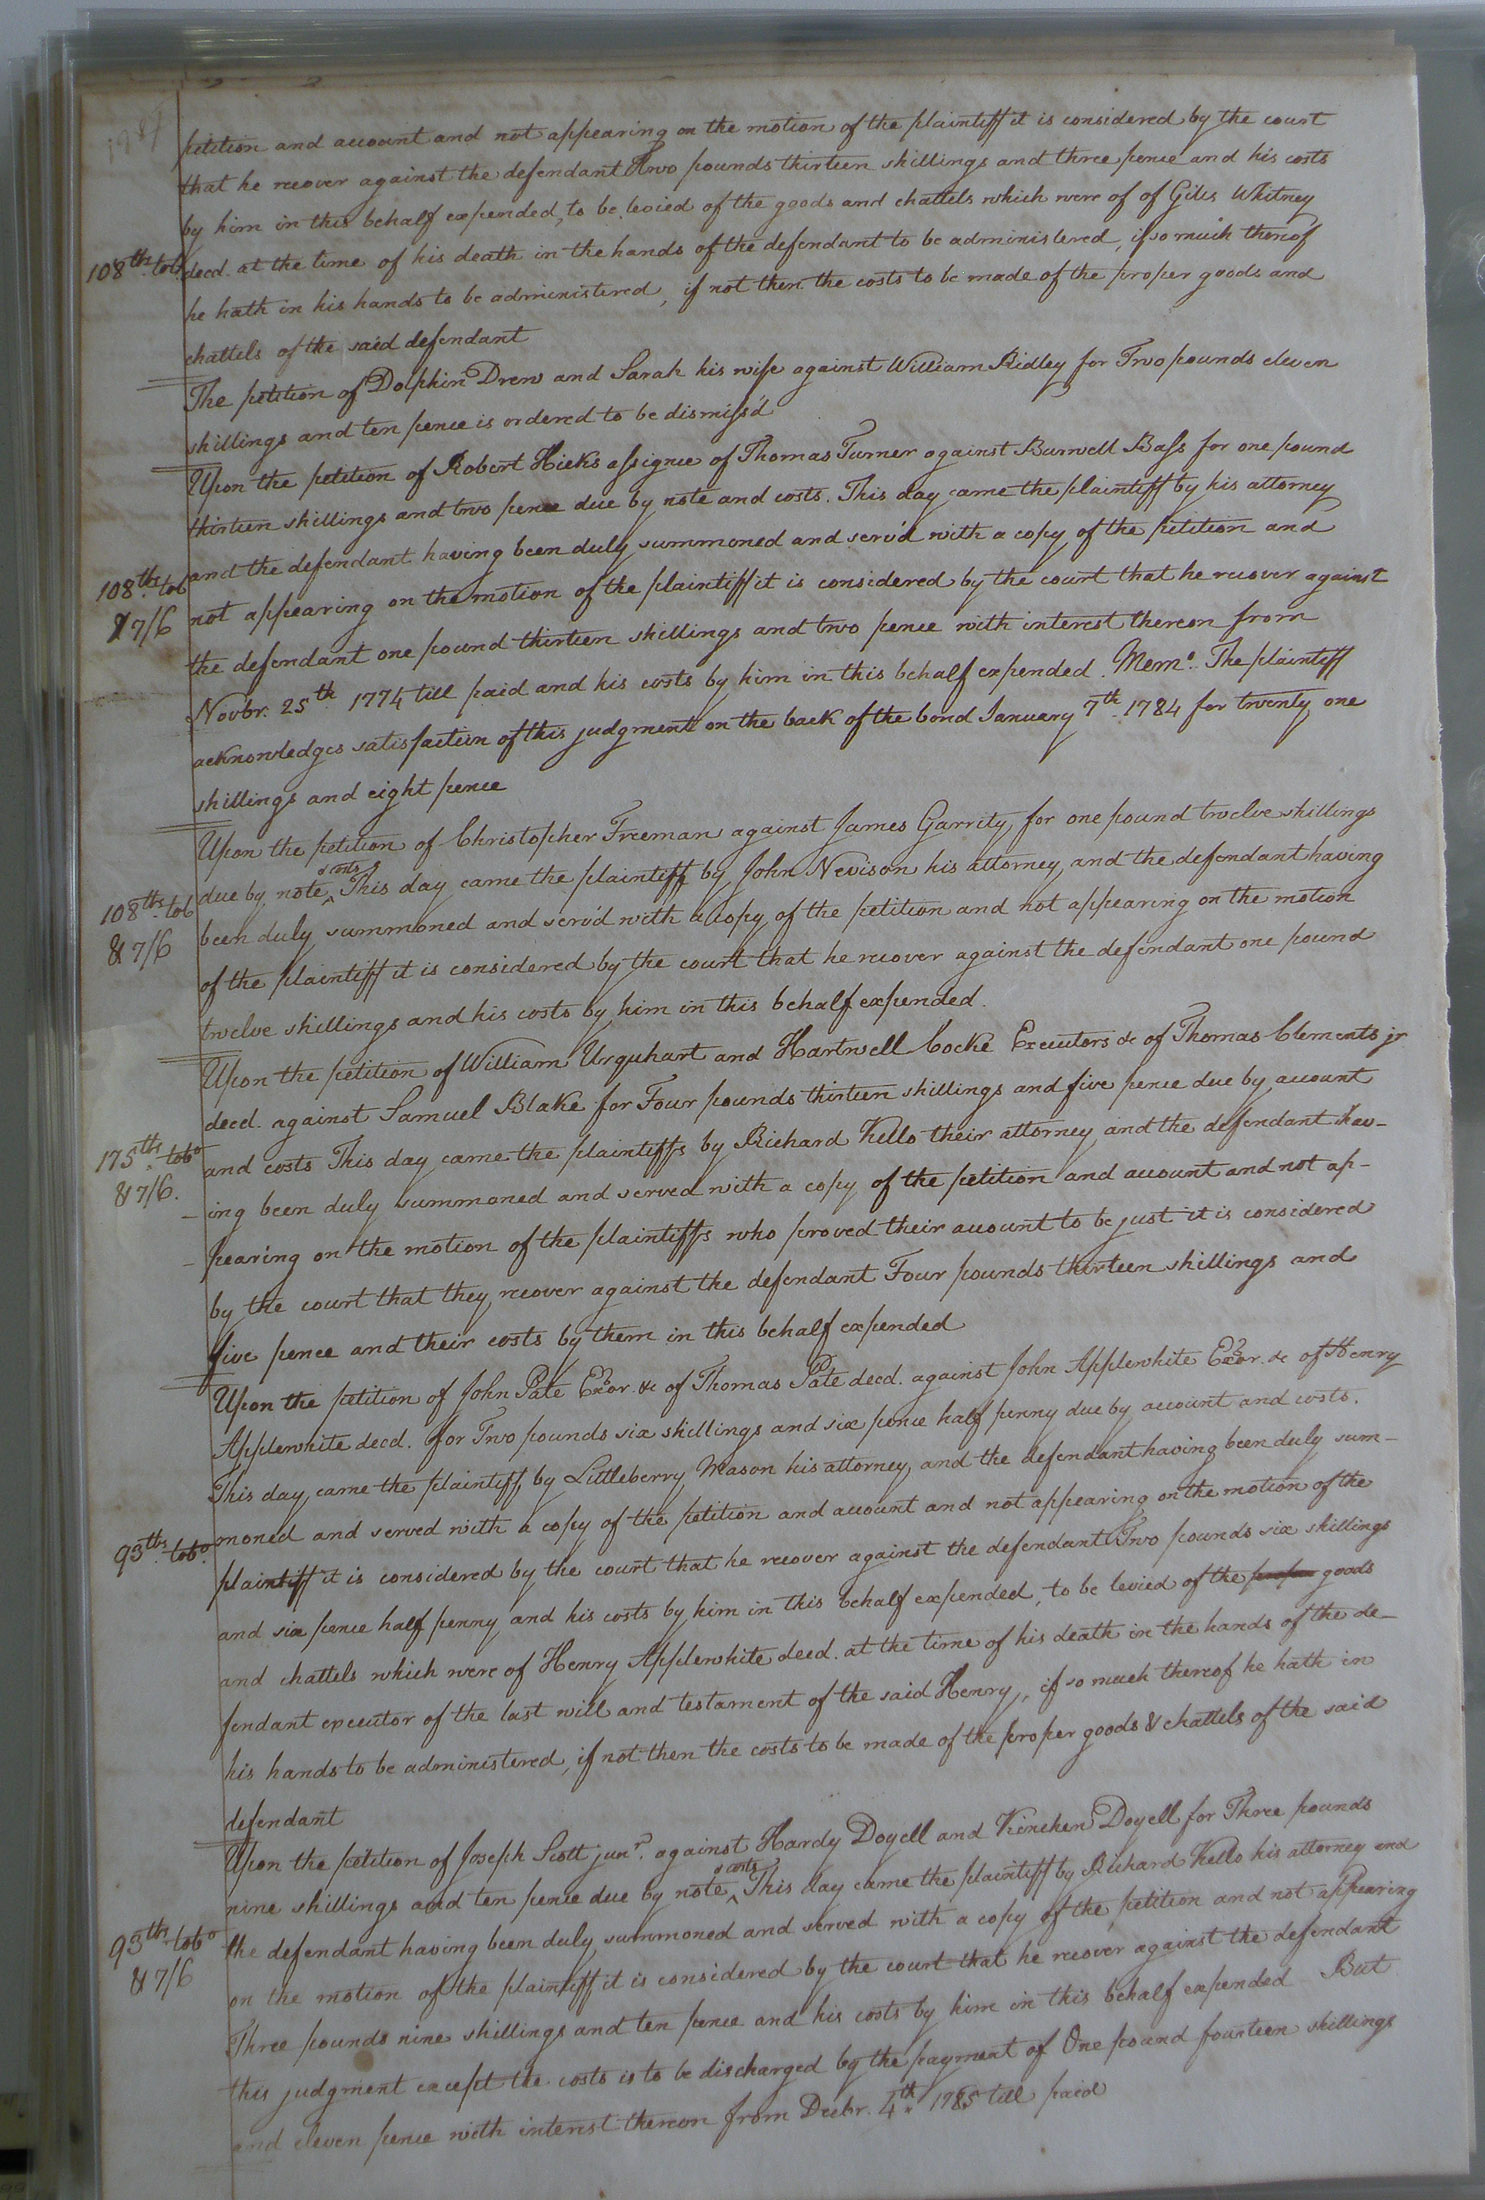 1787
petition and account and not appearing on the motion of the plaintiff it is considered by the court
that he recover against the defendant Two pounds thirteen shillings and three pence and his costs
by him in this behalf expended, to be levied of the goods and chattels which were of of Giles Whitney
108 ths. tob. decd. at the time of his death in the hands of the defendant to be administered, if so much thereof
he hath in his hands to be administered, if not then the costs to be made of the proper goods and
chattels of the said defendant
The petition of Dolphin Drew and Sarah his wife against William Ridley for Two pounds eleven
shillings and ten pence is ordered to be dismiss'd
Upon the petition of Robert Hicks assignee of Thomas Turner against Burwell Bass for one pound
thirteen shillings and two pence due by note and costs. This day came the plaintiff by his attorney
108 ths. tob and the defendant having been duly summoned and serv'd with a copy of the petition and
& 7/6 not appearing on the motion of the plaintiff it is considered by the court that he recover against
the defendant one pound thirteen shillings and two pence with interest thereon from
Novbr. 25th 1774 till paid and his costs by him in this behalf expended. Memo. The plaintiff
acknowledges satisfaction of this judgment on the back of the bond January 7th. 1784 for twenty one
shillings and eight pence
Upon the petition of Christopher Freeman against James Garrity for one pound twelve shillings
108 ths. tob due by note ^ & costs This day came the plaintiff by John Nevison his attorney and the defendant having
& 7/6 been duly summoned and serv'd with a copy of the petition and not appearing on the motion
of the plaintiff it is considered by the court that he recover against the defendant one pound
twelve shillings and his costs by him in this behalf expended.
Upon the petition of William Urquhart and Hartwell Cocke Executors &c of Thomas Clements jr
decd. against Samuel Blake for Four pounds thirteen shillings and five pence due by account
175 ths. tobo and costs This day came the plaintiffs by Richard Kello their attorney and the defendant hav-
& 7/6. - ing been duly summoned and served with a copy of the petition and account and not ap-
- pearing on the motion of the plaintiffs who proved their account to be just it is considered
by the court that they recover against the defendant Four pounds thirteen shillings and
five pence and their costs by them in this behalf expended
Upon the petition of John Pate Exor. &c of Thomas Pate decd. against John Applewhite Exor. &c of Henry
Applewhite decd. for Two pounds six shillings and six pence half penny due by account and costs.
This day came the plaintiff by Littleberry Mason his attorney and the defendant having been duly sum-
93 ths. tobo. moned and served with a copy of the petition and account and not appearing on the motion of the
plaintiff it is considered by the court that he recover against the defendant Two pounds six shillings
and six pence half penny and his costs by him in this behalf expended, to be levied of the proper goods
and chattels which were of Henry Applewhite decd. at the time of his death in the hands of the de-
fendant executor of the last will and testament of the said Henry, if so much thereof he hath in
his hands to be administered, if not then the costs to be made of the proper goods & chattels of the said
defendant
Upon the petition of Joseph Scott junr. against Hardy Doyell and Kinchen Doyell for Three pounds
nine shillings and ten pence due by note ^ & costs This day came the plaintiff by Richard Kello his attorney and
93 ths. tobo the defendant having been duly summoned and served with a copy of the petition and not appearing
& 7/6 on the motion of the plaintiff it is considered by the court that he recover against the defendant
Three pounds nine shillings and ten pence and his costs by him in this behalf expended But
this judgment except the costs is to be discharged by the payment of One pound fourteen shillings
and eleven pence with interest thereon from Decbr. 4th. 1785 till paid